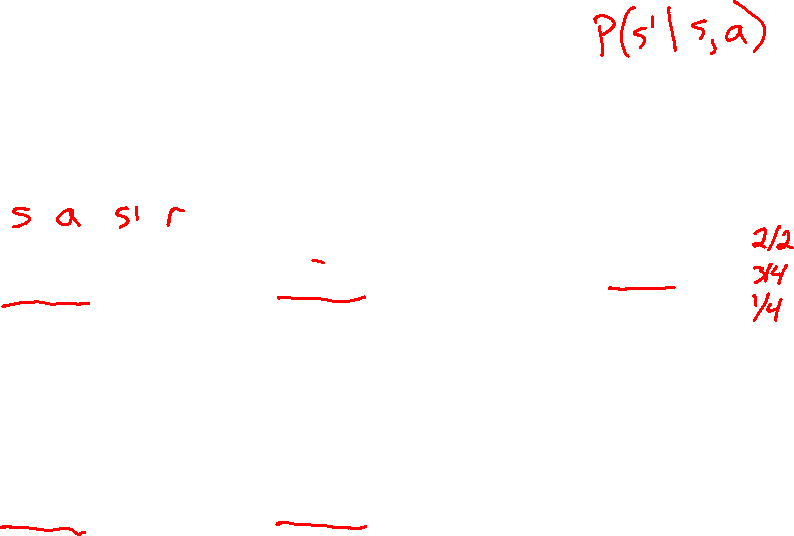 P(s'| s, a)
s a s' r
2/2
3/4
1/4